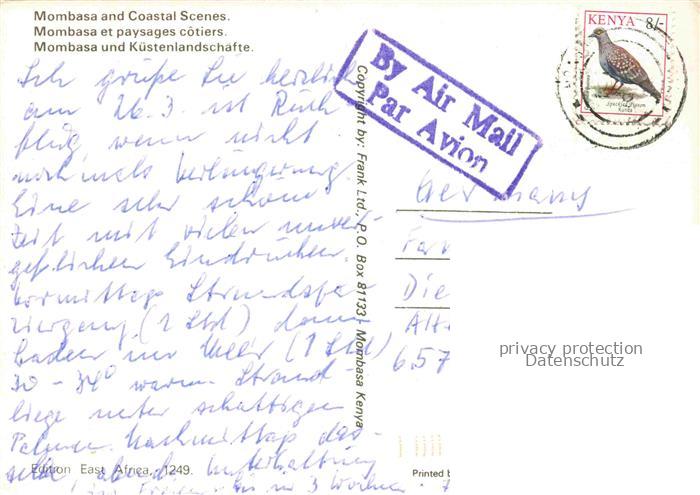 Mombasa and Coastal Scenes.
Mombasa et paysages côtiers.
Mombasa und Küstenlandschafte.
Ich grüße Sie herzlich
am 26.3. ist Rück
flug, wenn nicht
nochmals Verlängerung.
Eine sehr schöne
Zeit mit vielen unver-
geßlichen Eindrücken.
Vormittags Strandspa-
ziergang (2 Std) dann
baden im Meer (1 Std)
30 - 34° warm. Strand-
liege unter schattigen
Palmen. Nachmittags das-
selbe abends Unterhaltung
in 3 Wochen
Edition East Africa, 1249.
Copyright by: Frank Ltd., P.O. Box 81133 - Mombasa Kenya
By Air Mail
Par Avion
KENYA 8/-
Speckled Pigeon
Kanda
Germany
Fa
Die
Alt
657
privacy protection
Datenschutz
Printed b